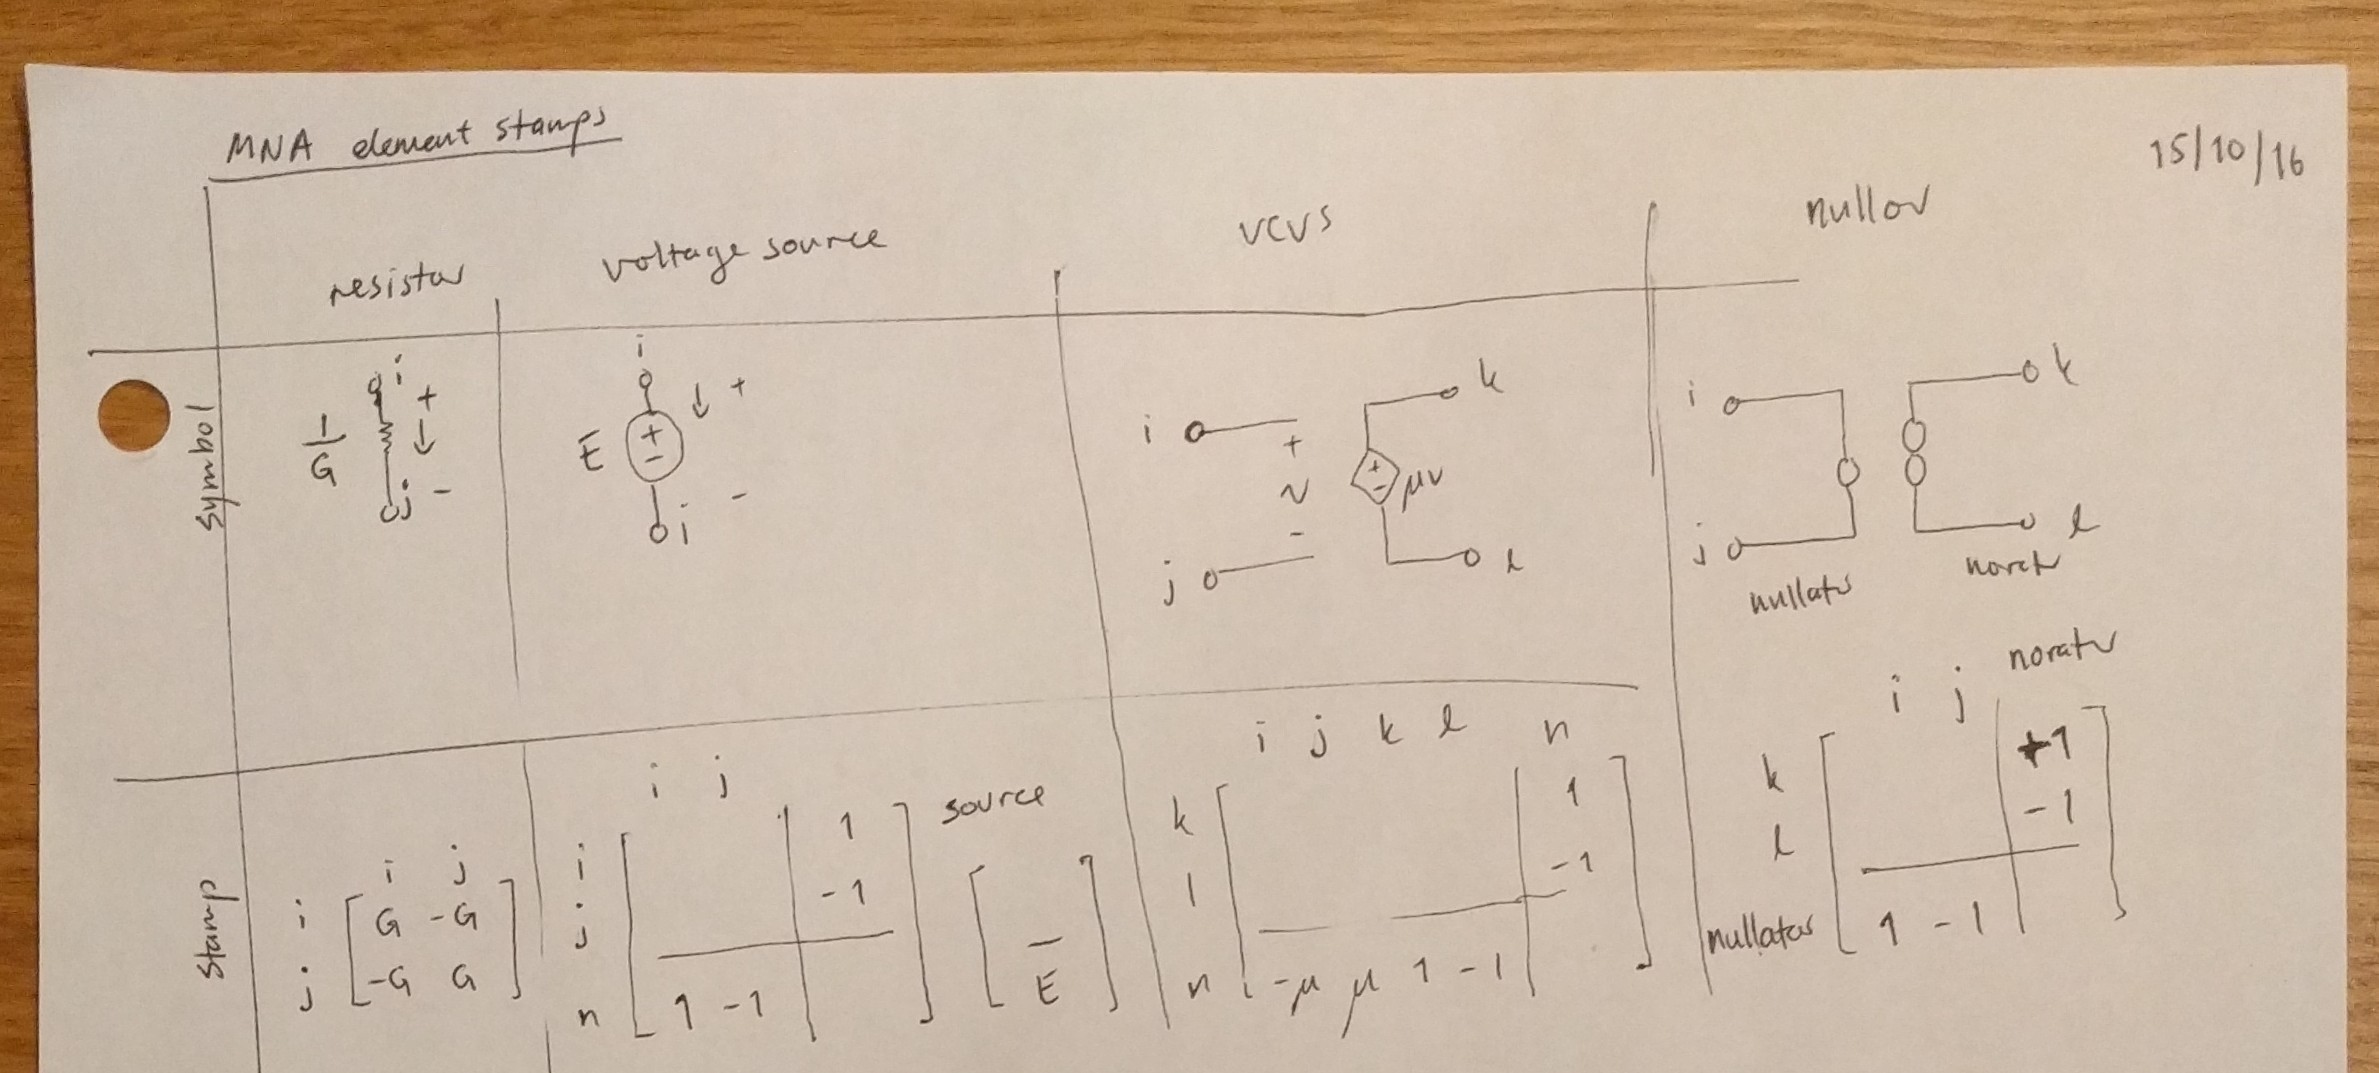 MNA element stamps
15/10/16
resistor voltage source VCVS nullor
Symbol
1/G i + j -
i E + - + i -
i + v - j + - μv k l
i j k l
nullator norator
Stamp
i j
i G -G
j -G G
i j source
i 1
j -1
n 1 -1 E
i j k l n
k 1
l -1
n -μ μ 1 -1
i j norator
k +1
l -1
nullator 1 -1